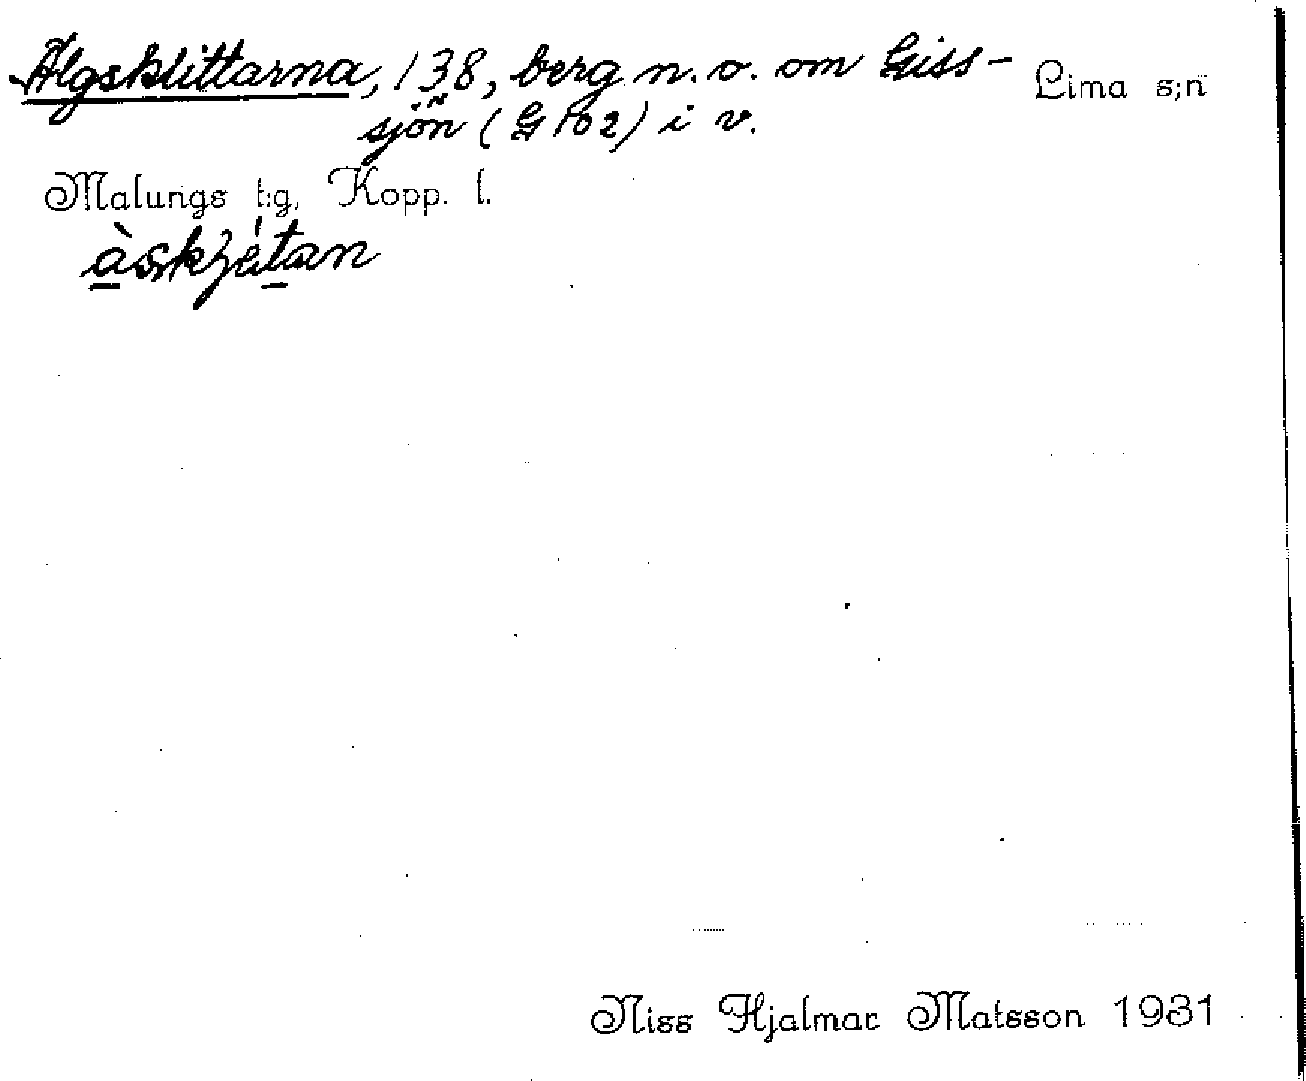 Älgsklittarna, 138, berg n. o. om Giss- Lima s;n
sjön (G 102) i v.
Malungs t:g, Kopp. l.
Niss Hjalmar Matsson 1931